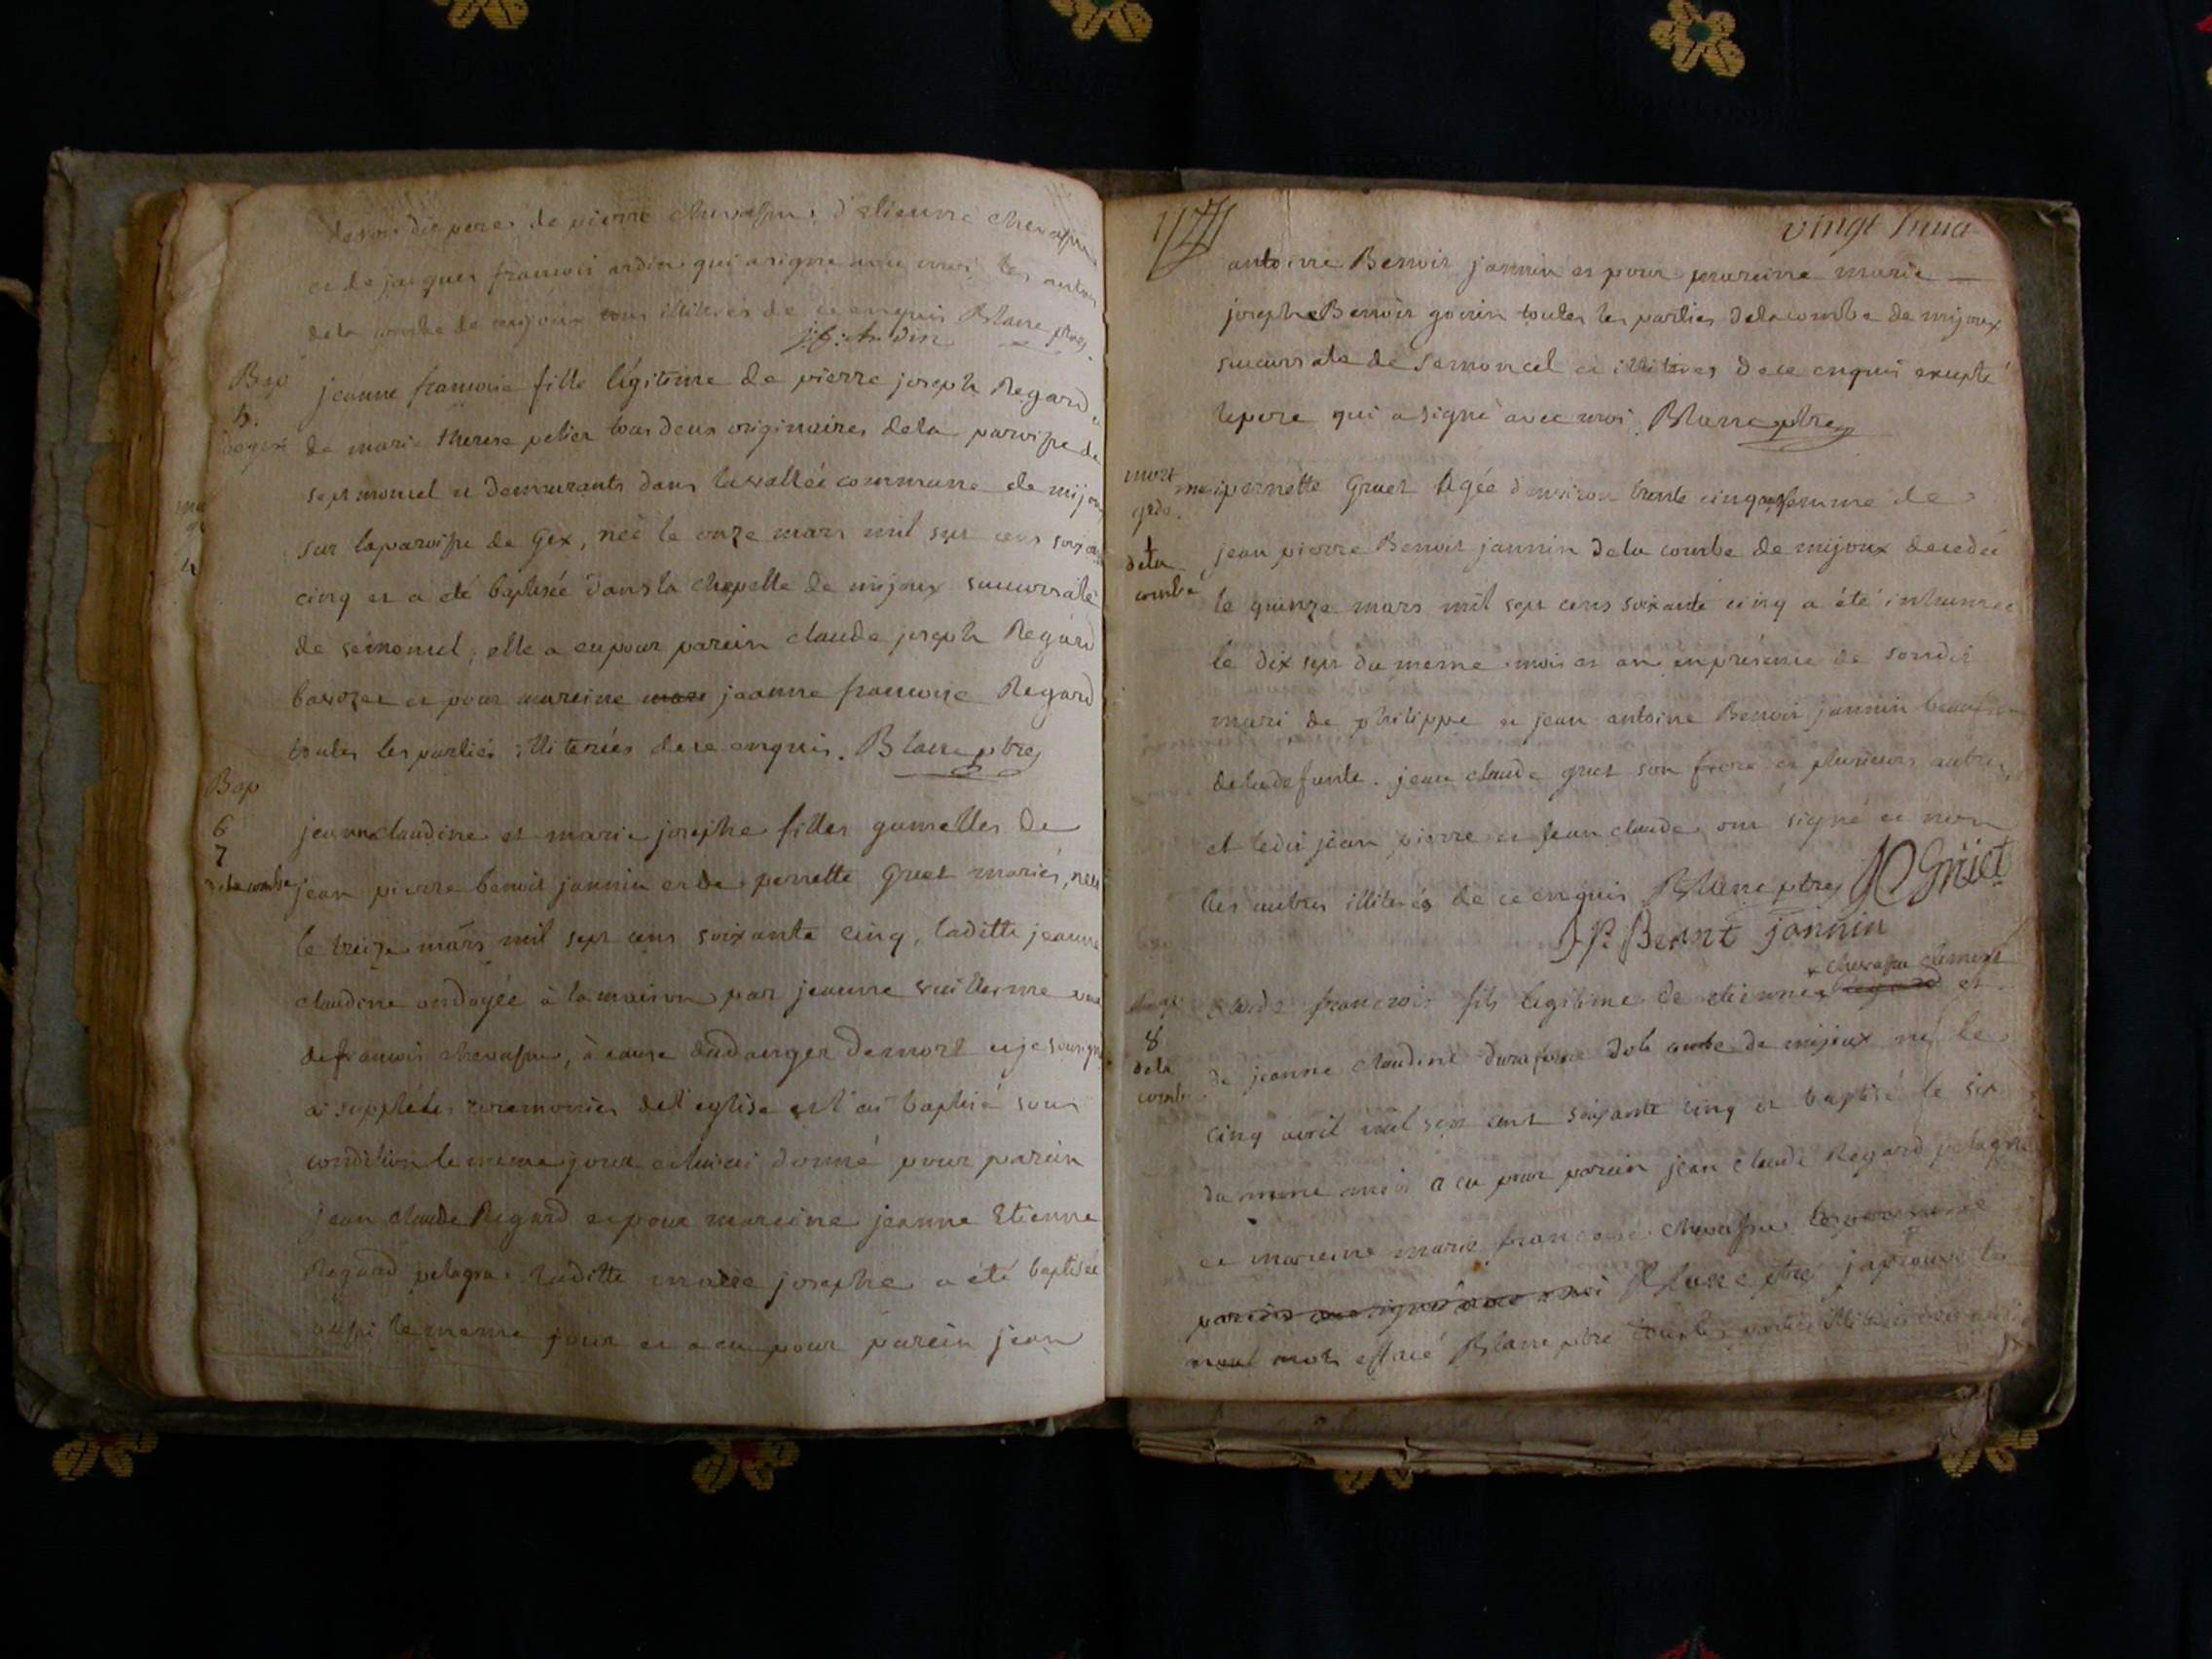 de pierre chevassus d'etienne chevassus
et de jacques francois ardin qui a signé avec moi les autres
de la combe de mijoux tous illiterés de ce enquis Blanc ptre
j.f. Ardin
Bap
5.
de gex
jeanne francoise fille légitime de pierre joseph Regard et
de marie therese pelier tous deux originaires de la paroisse de
sept moncel et demeurants dans la vallée commune de mijoux
sur la paroisse de Gex, neé le onze mars mil sept cens soixante
cinq et a eté baptisée dans la chapelle de mijoux succursale
de semoncel, elle a eu pour parein claude joseph Regard
et pour mareine jeanne francoise Regard
toutes les parties illiterées de ce enquis. Blanc ptre
Bap
6
7
de la combe
jeanne claudine et marie josephe filles gumelles de
jean pierre benoit jannin et de pernette Gruet mariés, neés
le treize mars mil sept cens soixante cinq, laditte jeanne
claudine ondoyée à la maison par jeanne
de francois chevassus, à cause du danger de mort et je soussigné
ai supplée les ceremonies de l'eglise et l'ai baptisé sous
condition le meme jour et lui ai donné pour parein
jean claude Regard et pour mareine jeanne Etienne
Regard pelagra. laditte marie josephe a été baptisée
aussi le meme jour et a eu pour parein jean
vingt
antoine Benoit jannin et pour mareine marie
josephe Benoit gonin toutes les parties de la combe de mijoux
succursale de Semoncel et illiterés de ce enquis excepté
le pere qui a signé avec moi. Blanc ptre
mort
1
de la
combe
pernette Gruet agée d'environ trente cinq ans femme de
jean pierre Benoit jannin de la combe de mijoux decedeé
le quinze mars mil sept cens soixante cinq a été inhumée
le dix sept du meme mois et an en présence de sondit
mari de philippe et jean antoine Benoit jannin beaufrere
de la defunte. jean claude gruet son frere et plusieurs autres,
et ledit jean pierre et jean claude ont signé et non
les autres illiterés de ce enquis Blanc ptre JC Gruet
J P. Benoit jannin
chevassu clement
8
de la
combe
claude francois fils legitime de etienne regard et
de jeanne claudine duraffour de la combe de mijoux né le
cinq avril mil sept cent soixante cinq et baptisé le six
du meme mois a eu pour parein jean claude Regard pelagra
et mareine marie francoise chevassus
parein moi Blanc ptre japrouve les
neuf mots effacé Blanc ptre toutes les parties